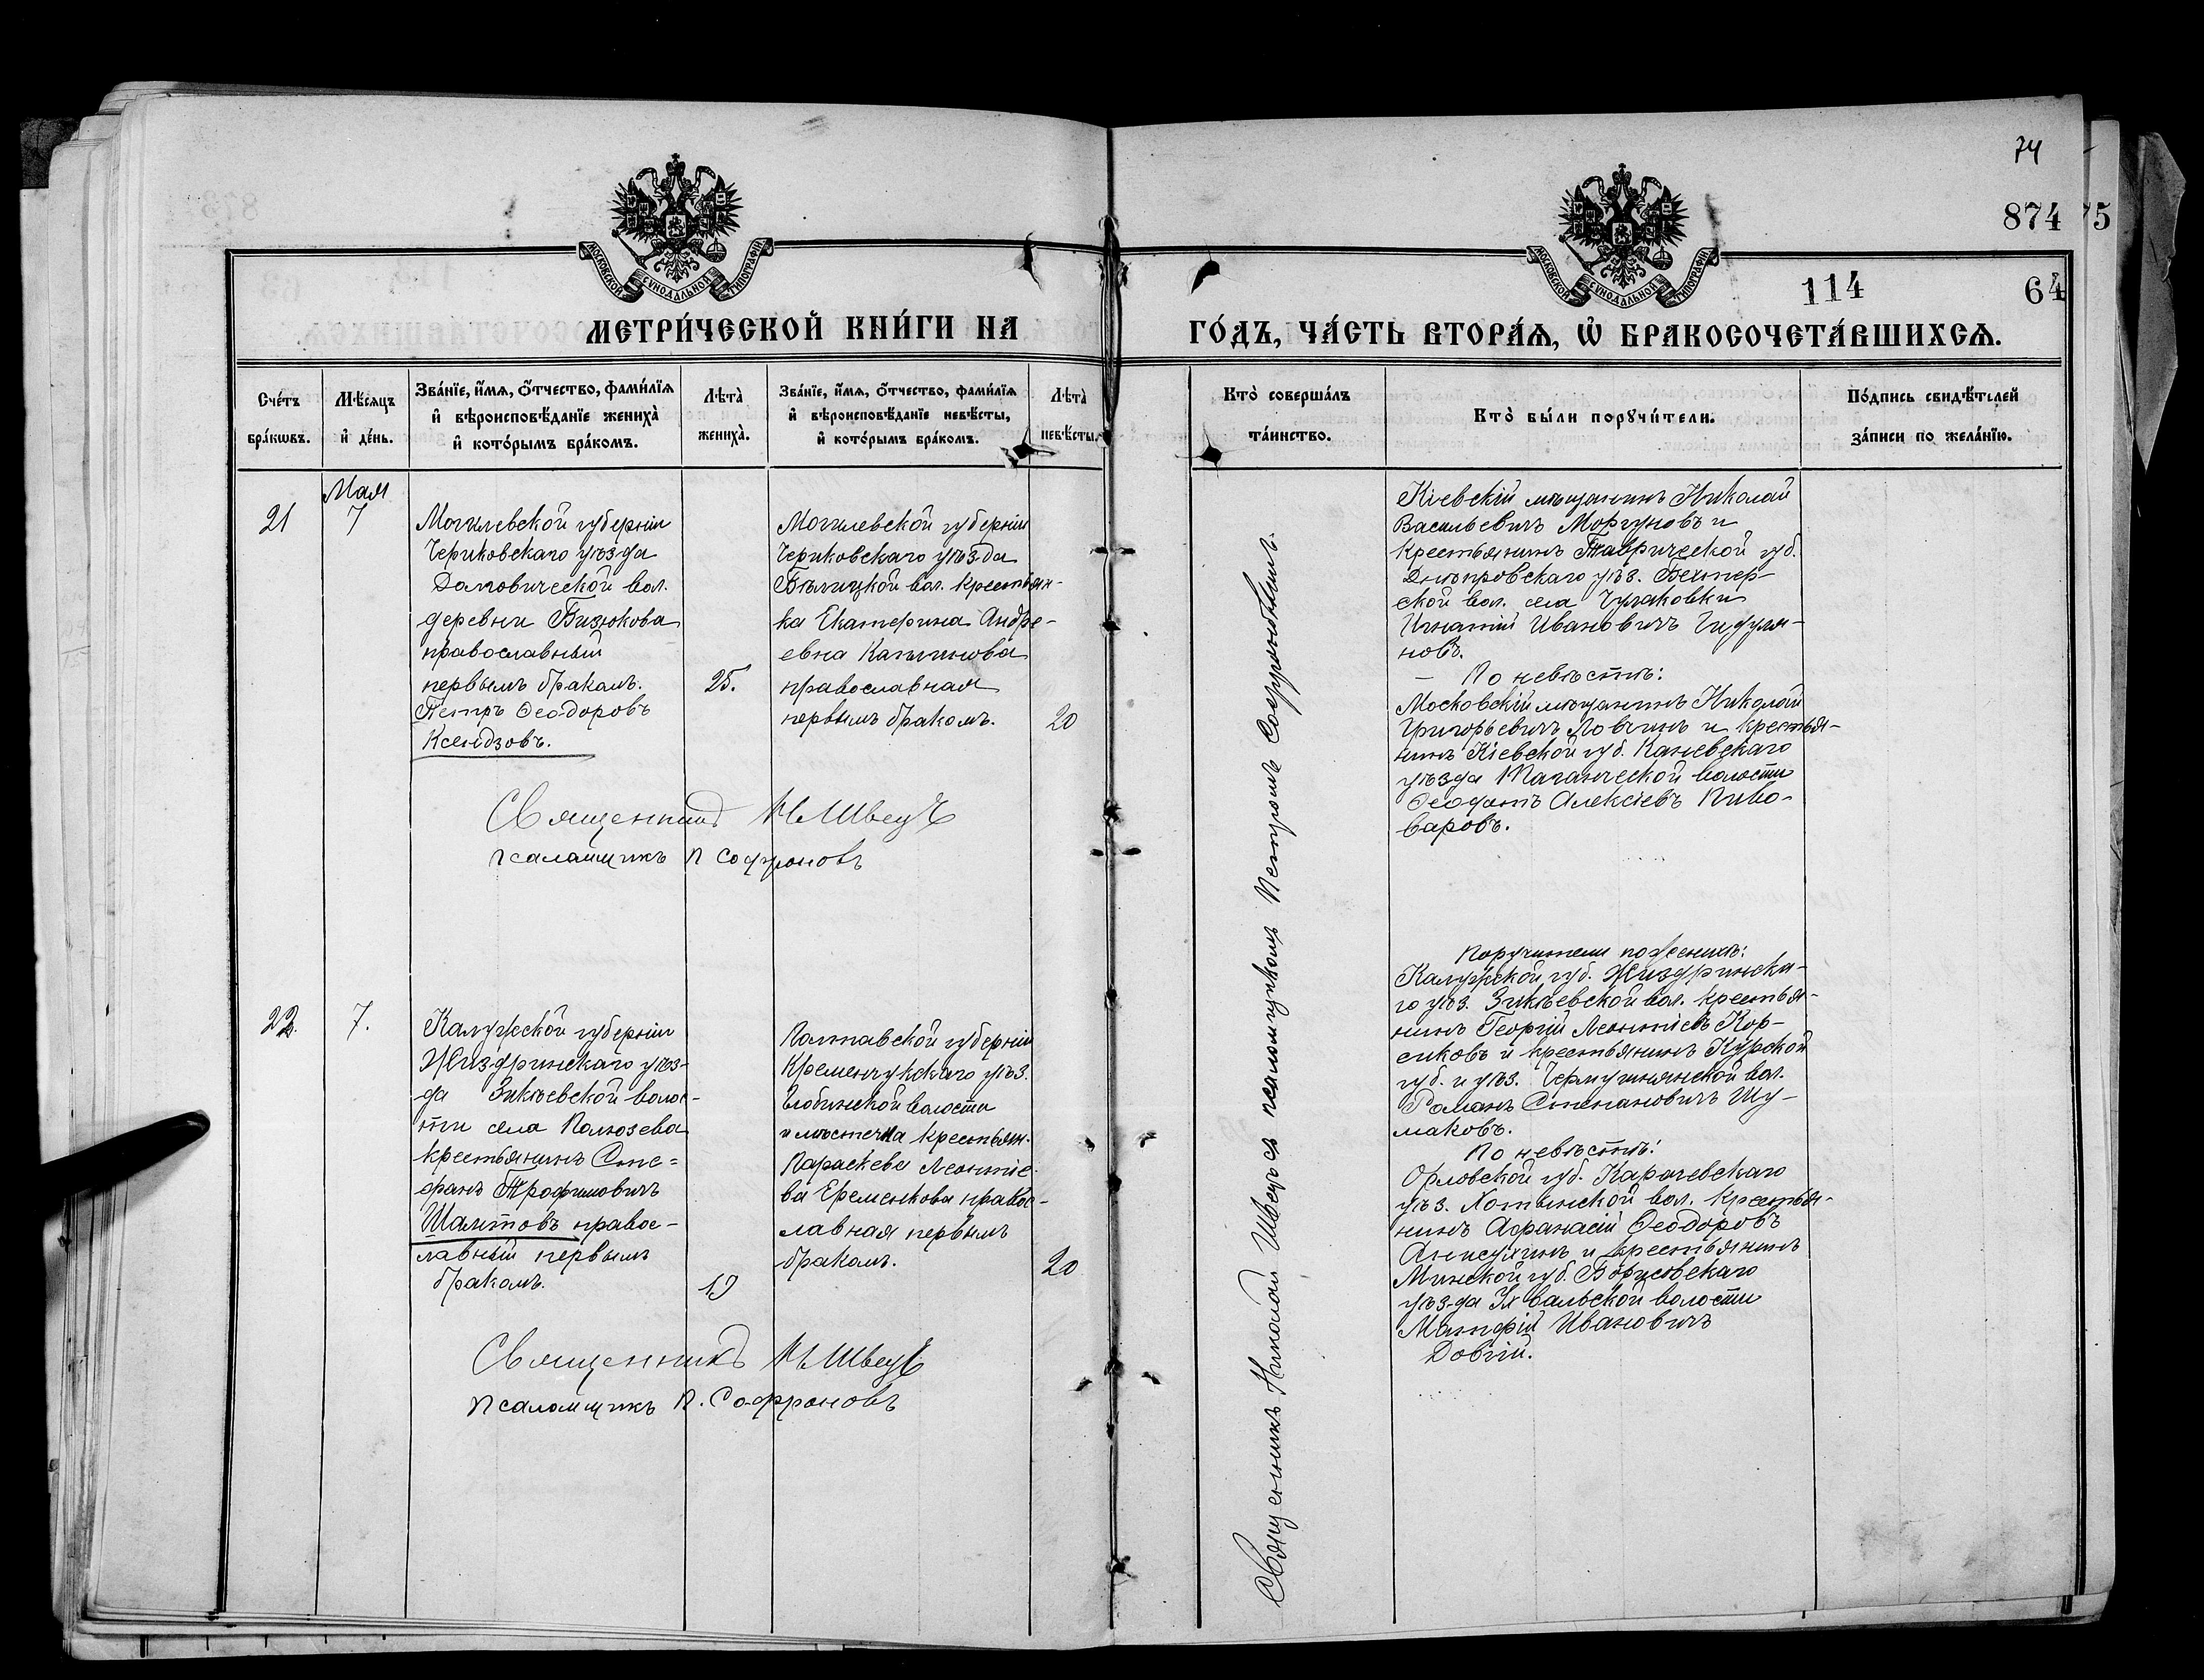 74
874
75
114
64
МОСКОВСКОЙ СУНОДАЛЬНОЙ ТИПОГРАФІИ
МОСКОВСКОЙ СУНОДАЛЬНОЙ ТИПОГРАФІИ
МЕТРИ́ЧЕСКОЙ КНИ́ГИ НА
ГО́ДЪ, ЧА́СТЬ ВТОРА́Ѧ, Ѡ҆ БРАКОСОЧЕТА́ВШИХСѦ.
Сче́тъ
бра́кѡвъ.
Мѣ́сяцъ
и҆ де́нь.
Зва́нїе, и҆́мѧ, о҆́тчество, фами́лїѧ
и҆ вѣроисповѣ́данїе жениха̀
и҆ кото́рымъ бра́комъ.
Лѣта̀
жениха̀.
Зва́нїе, и҆́мѧ, о҆́тчество, фами́лїѧ
и҆ вѣроисповѣ́данїе невѣ́сты,
и҆ кото́рымъ бра́комъ.
Лѣта̀
невѣ́сты.
Кто̀ соверша́лъ
та́инство.
Кто̀ бы́ли порꙋчи́тели.
По́дпись свидѣ́телей
за́писи по жела́нїю.
21
Мая
7
Могилевской губерніи
Чериковскаго уѣзда
Домовической вол.
деревни Бизюкова
православный
первымъ бракомъ.
Петръ Ѳеодоровъ
Ксендзовъ.
25.
Могилевской губерніи
Чериковскаго уѣзда
Бѣлицкой вол. крестьян-
ка Екатерина Андре-
евна
православная
первымъ бракомъ.
20
Священникъ Н. Швецъ
псаломщикъ П Софроновъ
Священникъ Николай Швецъ съ псаломщикомъ Петромъ Софроновымъ.
Кіевскій мѣщанинъ Николай
Васильевичъ Моргуновъ и
крестьянинъ Таврической губ.
Днѣпровскаго уѣз. Бехтер-
ской вол. села Чулаковки
Игнатій Ивановичъ
новъ.
— По невѣстѣ:
Московскій мѣщанинъ Николай
Григорьевичъ Ловчинъ и крестья-
нинъ Кіевской губ. Каневскаго
уѣзда Таганческой волости
Ѳеодотъ Алексіевъ Пиво-
варовъ.
22.
7.
Калужской губерніи
Жиздринскаго уѣз-
да Зикѣевской волос-
ти села Полюзева
крестьянинъ Сте-
фанъ Трофимовичъ
Шалтовъ правос-
лавный первымъ
бракомъ.
19
Полтавской губерніи
Кременчукскаго уѣз.
Глобинской волости
и мѣстечка крестьян.
Параскева Леонтіе-
ва Еременкова правос-
лавная первымъ
бракомъ.
20
Священникъ Н. Швецъ
Псаломщикъ П. Софроновъ
Поручители по женихѣ:
Калужской губ. Жиздринска-
го уѣз. Зикѣевской вол. крестья-
нинъ Георгій Леонтіевъ Кор-
сиковъ и крестьянинъ Курской
губ. и уѣз. вол.
Романъ Степановичъ Шу-
маковъ.
По невѣстѣ:
Орловской губ. Карачевскаго
уѣз. Хотынской вол. крестья-
нинъ Афанасій Ѳеодоровъ
Анисухинъ и крестьянинъ
Минской губ. Борисовскаго
уѣзда Ухвальской волости
Ивановичъ
Довгій.